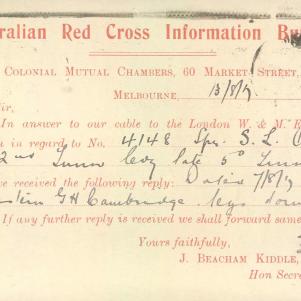 ralian Red Cross Information Bu
COLONIAL MUTUAL CHAMBERS, 60 MARKET STREET,
MELBOURNE, 13/8/17
ir,
In answer to our cable to the London W. & M. E
in regard to No. 4148 Spr. S. L.
2nd Tunn Coy late 5th Tunn
ve received the following reply: Dated 7/8/17
GH Cambridge legs
If any further reply is received we shall forward same
Yours faithfully,
J. BEACHAM KIDDLE,
Hon Secre